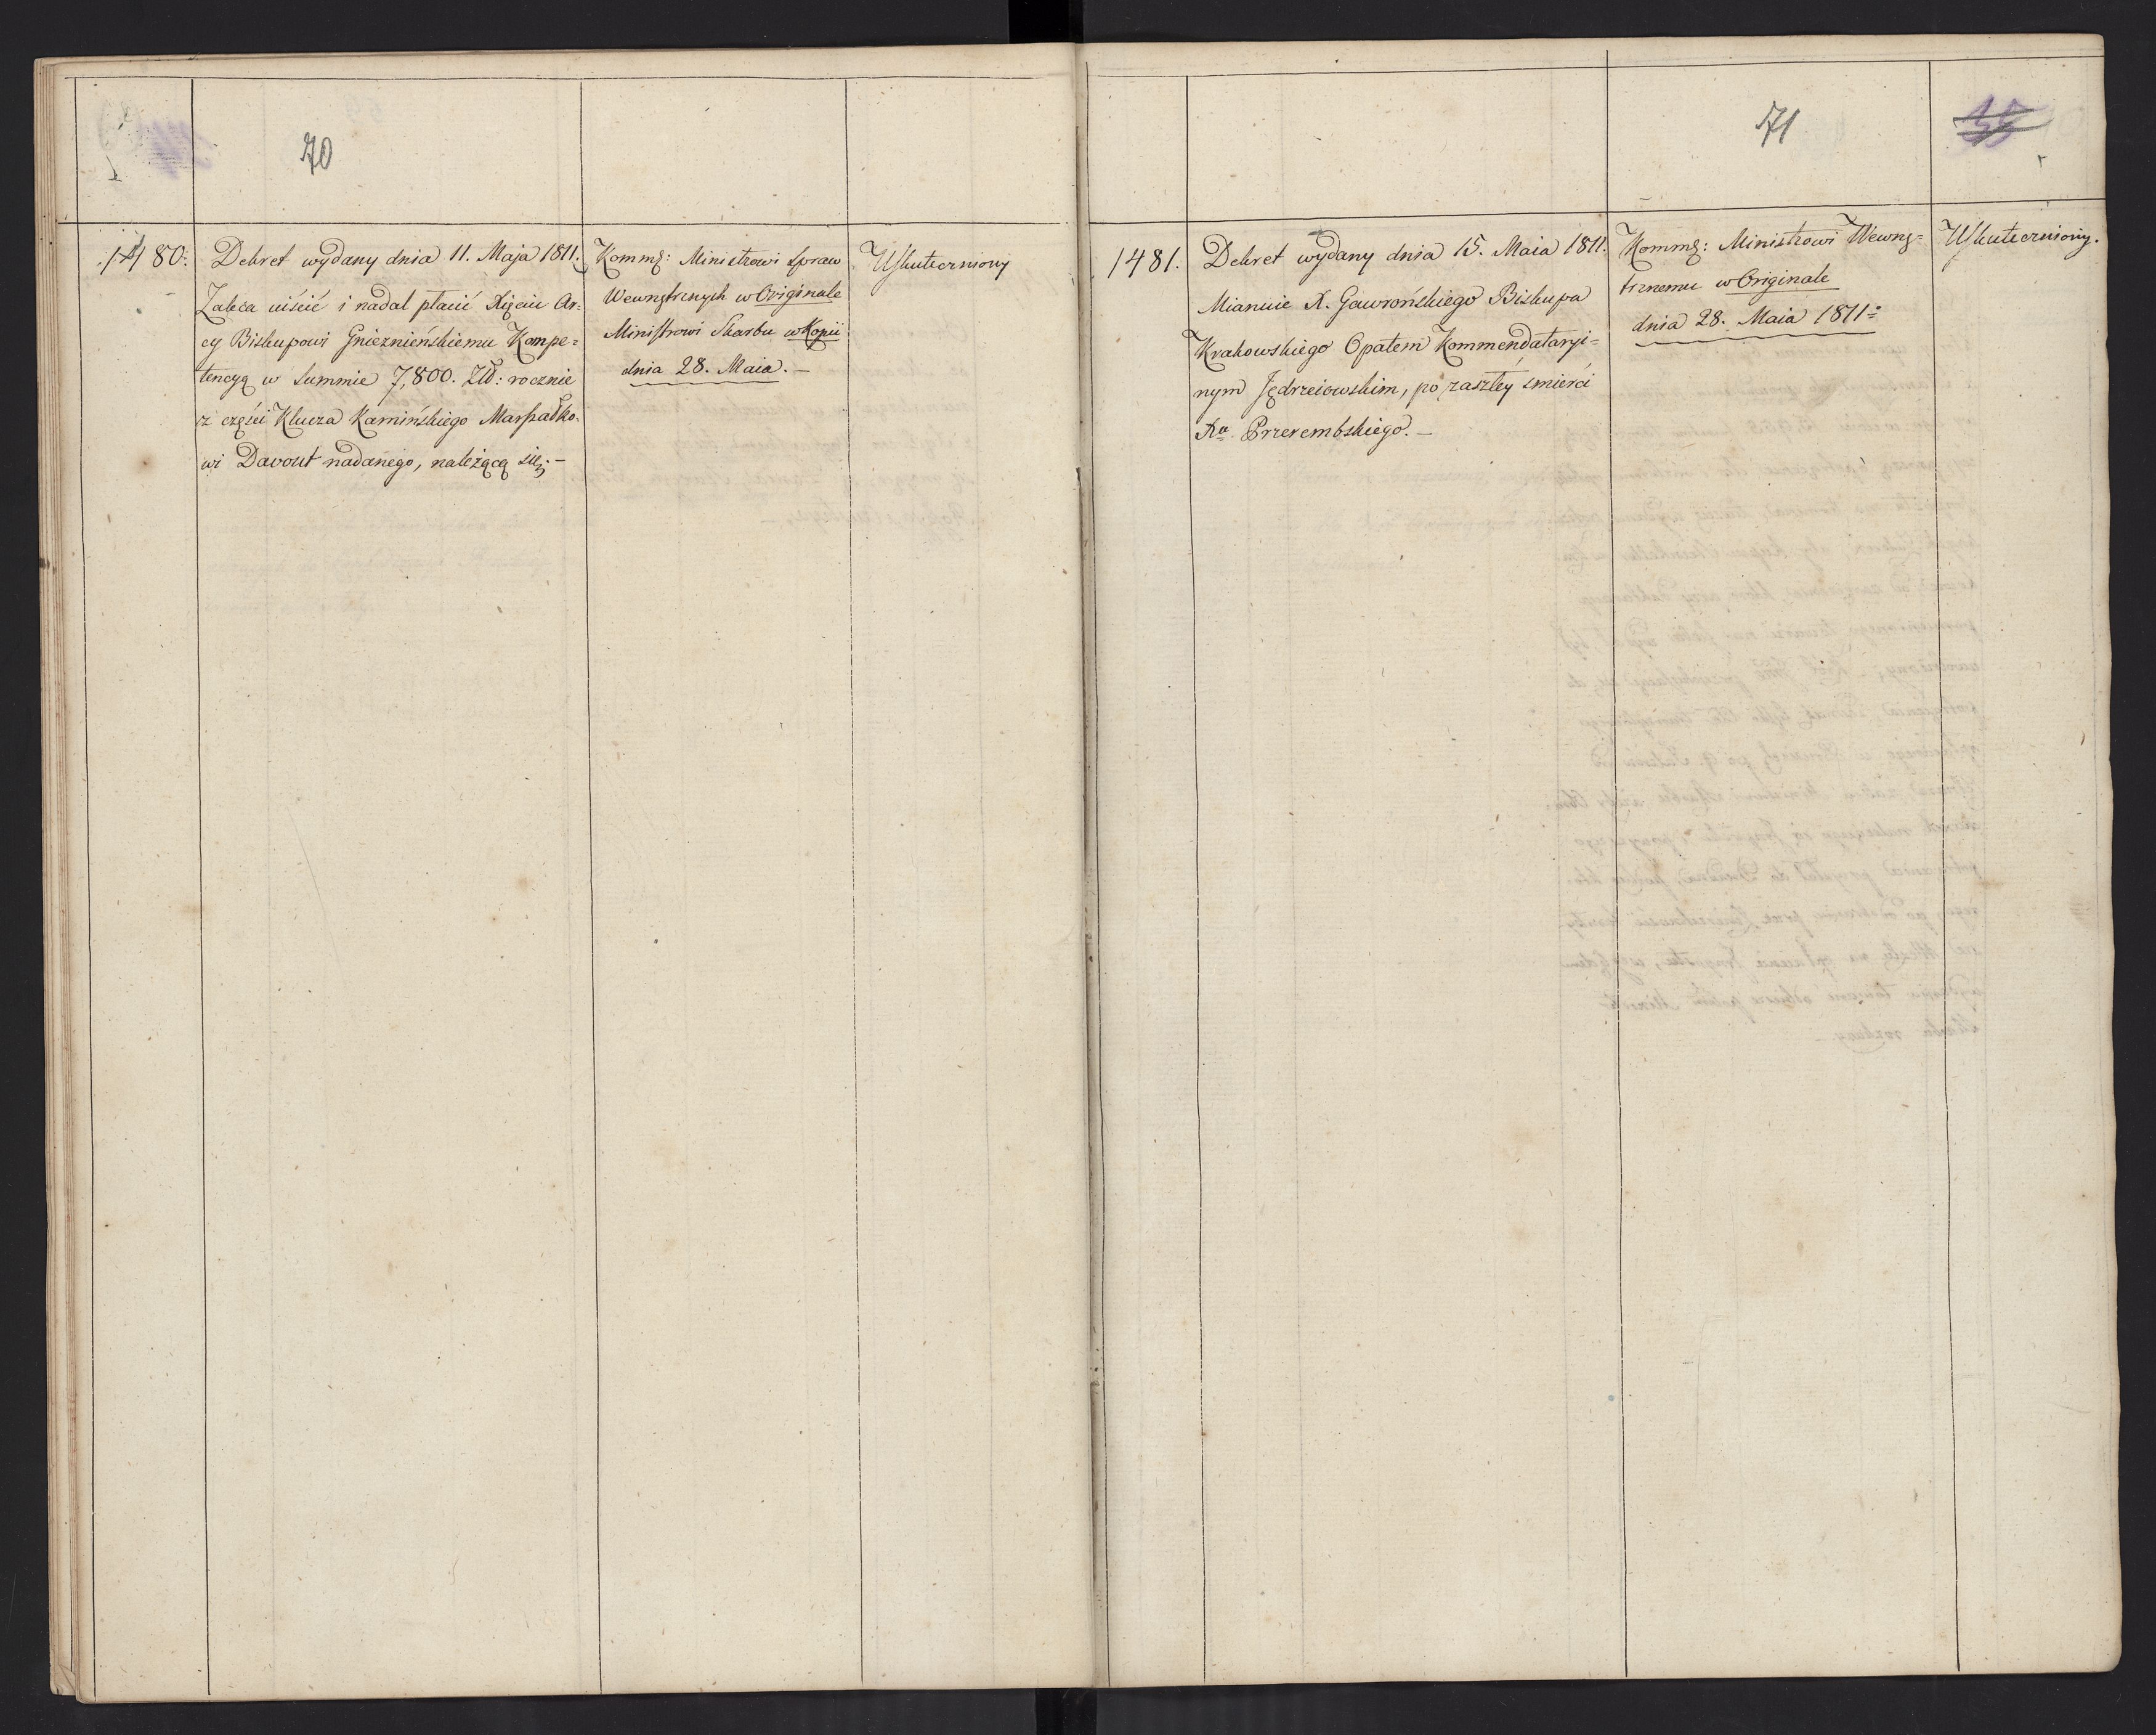 70
1480.
Dekret wydany dnia 11. Maja 1811.
Zaleca uiścić i nadal płacić Xięciu Ar-
cy Biskupowi Gnieźnieńskiemu Kompe=
tencyą w Summie 7,800. Zło: rocznie
z części Klucza Kamińskiego Marszałko-
wi Davout nadanego, należącą się. –
Kommę: Ministrowi Spraw
Wewnętrznych w Originale
Ministrowi Skarbu w Kopii
dnia 28. Maia. –
Uskuteczniony
71
1481.
Dekret wydany dnia 15. Maia 1811.
Mianuie X. Gawrońskiego Biskupa
Krakowskiego Opatem Kommendataryi=
nym Jędrzeiowskim, po zaszłey śmierci
Xa Przerembskiego. –
Kommę: Ministrowi Wewnę=
trznemu w Originale
dnia 28. Maia 1811.
Uskuteczniony.